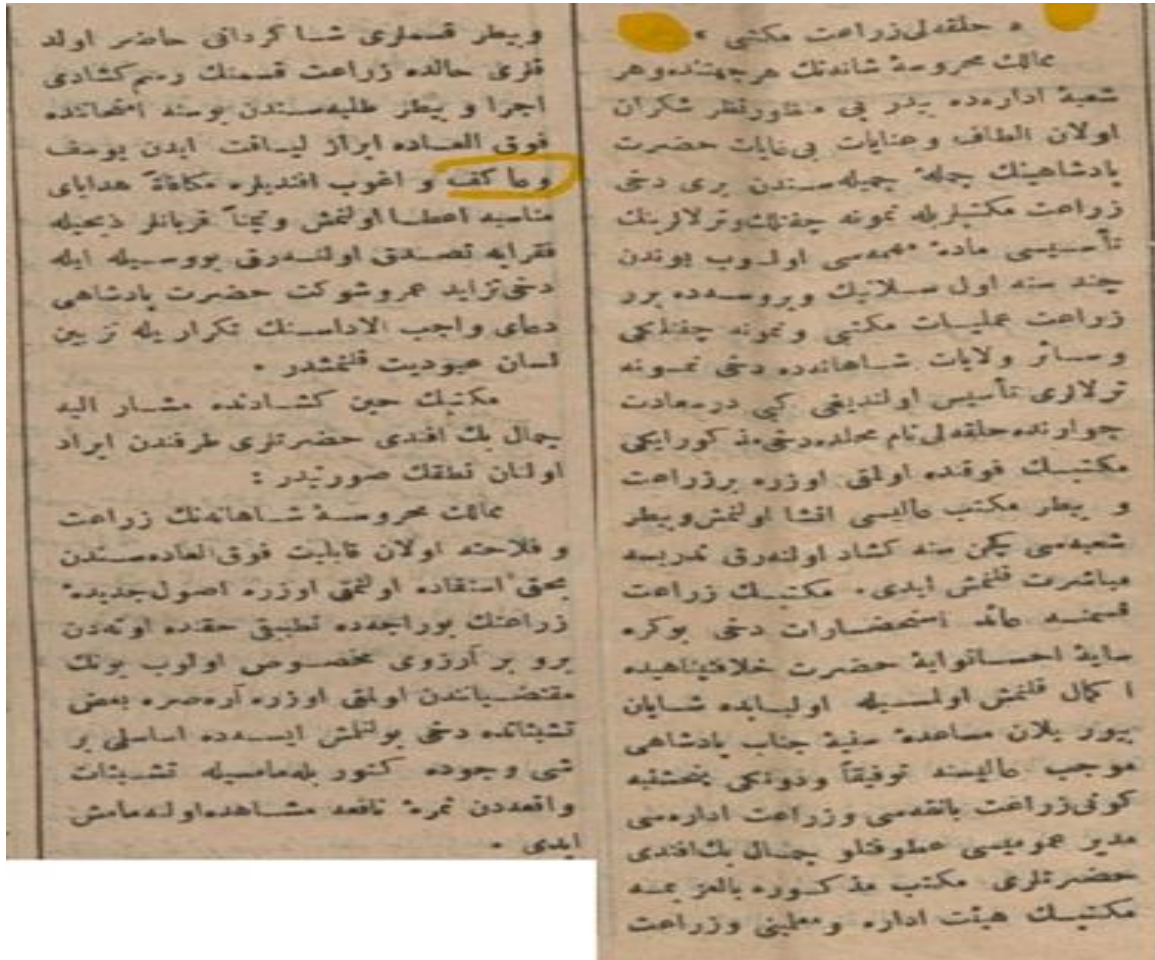 « حلقه‌لی زراعت مکتبی »
ممالك محروسهٔ شاهانه‌نك هر جهتنده و هر
شعبهٔ اداره‌ده پدر پی منظور نظر شکران
اولان الطاف و عنایات بی‌غایات حضرت
پادشاهینك جملهٔ جمیله‌سندن بری دخی
زراعت مکتبلریله نمونه چفتلك و ترلالرینك
تأسیسی مادهٔ مهمه‌سی اولوب بوندن
چند سنه اول سلانیك و بروسه‌ده برر
زراعت عملیات مکتبی و نمونه چفتلکی
و سائر ولایات شاهانه‌ده دخی نمونه
ترلالری تأسیس اولندیغی کبی درسعادت
جوارنده حلقه‌لی نام محلده دخی مذکور ایکی
مکتبك فوقنده اولمق اوزره بر زراعت
و بیطر مکتب عالیسی انشا اولنمش و بیطر
شعبه‌سی کچن سنه کشاد اولنه‌رق تدریسه
مباشرت قلنمش ایدی . مکتبك زراعت
قسمنه عائد استحضارات دخی بوکره
سایهٔ احسانوایهٔ حضرت خلافتپناهیده
اکمال قلنمش اولمسیله اولبابده شایان
بیوریلان مساعدهٔ سنیهٔ جناب پادشاهی
موجب عالیسنه توفیقاً و دونکی پنجشنبه
کونی زراعت بانقه‌سی و زراعت اداره‌سی
مدیر عمومیسی عطوفتلو جمال بك افندی
حضرتلری مکتب مذکوره بالعزیمه
مکتبك هیئت اداره و معلمینی و زراعت
و بیطر قسملری شاکردانی حاضر اولد
قلری حالده زراعت قسمنك رسم کشادی
اجرا و بیطر طلبه‌سندن بو سنه امتحانده
فوق العاده ابراز لیاقت ایدن یوسف
و عاکف و اغوب افندیلره مکافاةً هدایای
مناسبه اعطا اولنمش و تیمناً قربانلر ذبحیله
فقرایه تصدق اولنه‌رق بو وسیله ایله
دخی تزاید عمر و شوکت حضرت پادشاهی
دعای واجب الاداسنك تکراریله تزیین
لسان عبودیت قلنمشدر .
مکتبك حین کشادنده مشار الیه
جمال بك افندی حضرتلری طرفندن ایراد
اولنان نطقك صورتیدر :
ممالك محروسهٔ شاهانه‌نك زراعت
و فلاحته اولان قابلیت فوق العاده‌سندن
بحق استفاده اولنمق اوزره اصول جدیدهٔ
زراعتك بوراجه‌ده تطبیق حقنده اوته‌دن
برو بر آرزوی مخصوص اولوب بونك
مقتضیاتندن اولمق اوزره آره‌صره بعض
تشبثاتده دخی بولنلمش ایسه‌ده اساسلی بر
شی وجوده کتوریله‌مامسیله تشبثات
واقعه‌دن ثمرهٔ نافعه مشاهده اولنه‌مامش
ایدی .